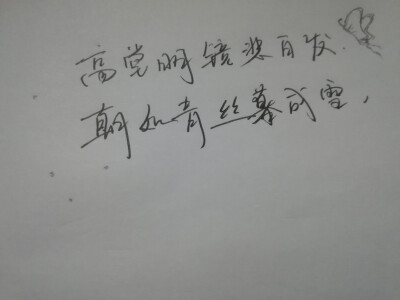 高堂明镜悲白发.
朝如青丝暮成雪,